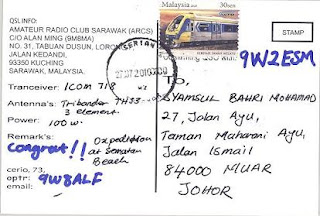 QSL INFO:
AMATEUR RADIO CLUB SARAWAK (ARCS)
C/O ALAN MING (9M8MA)
NO. 31, TABUAN DUSUN, LORONG
JALAN KEDANDI,
93350 KUCHING
SARAWAK, MALAYSIA.
Tranceiver: ICOM 718
Antenna's: Tribander TH33
3 element.
Power: 100 w.
Remark's:
Congrat!! Oxpedition
at Sematan
Beach
cerio, 73,
optr: 9W8ALF
email:
Malaysia 30sen
SERIAN
STAMP
9W2ESM
TO,
SYAMSUL BAHRI MOHAMAD
27, Jalan Ayu,
Taman Maharani Ayu,
Jalan Ismail
84000 MUAR
JOHOR